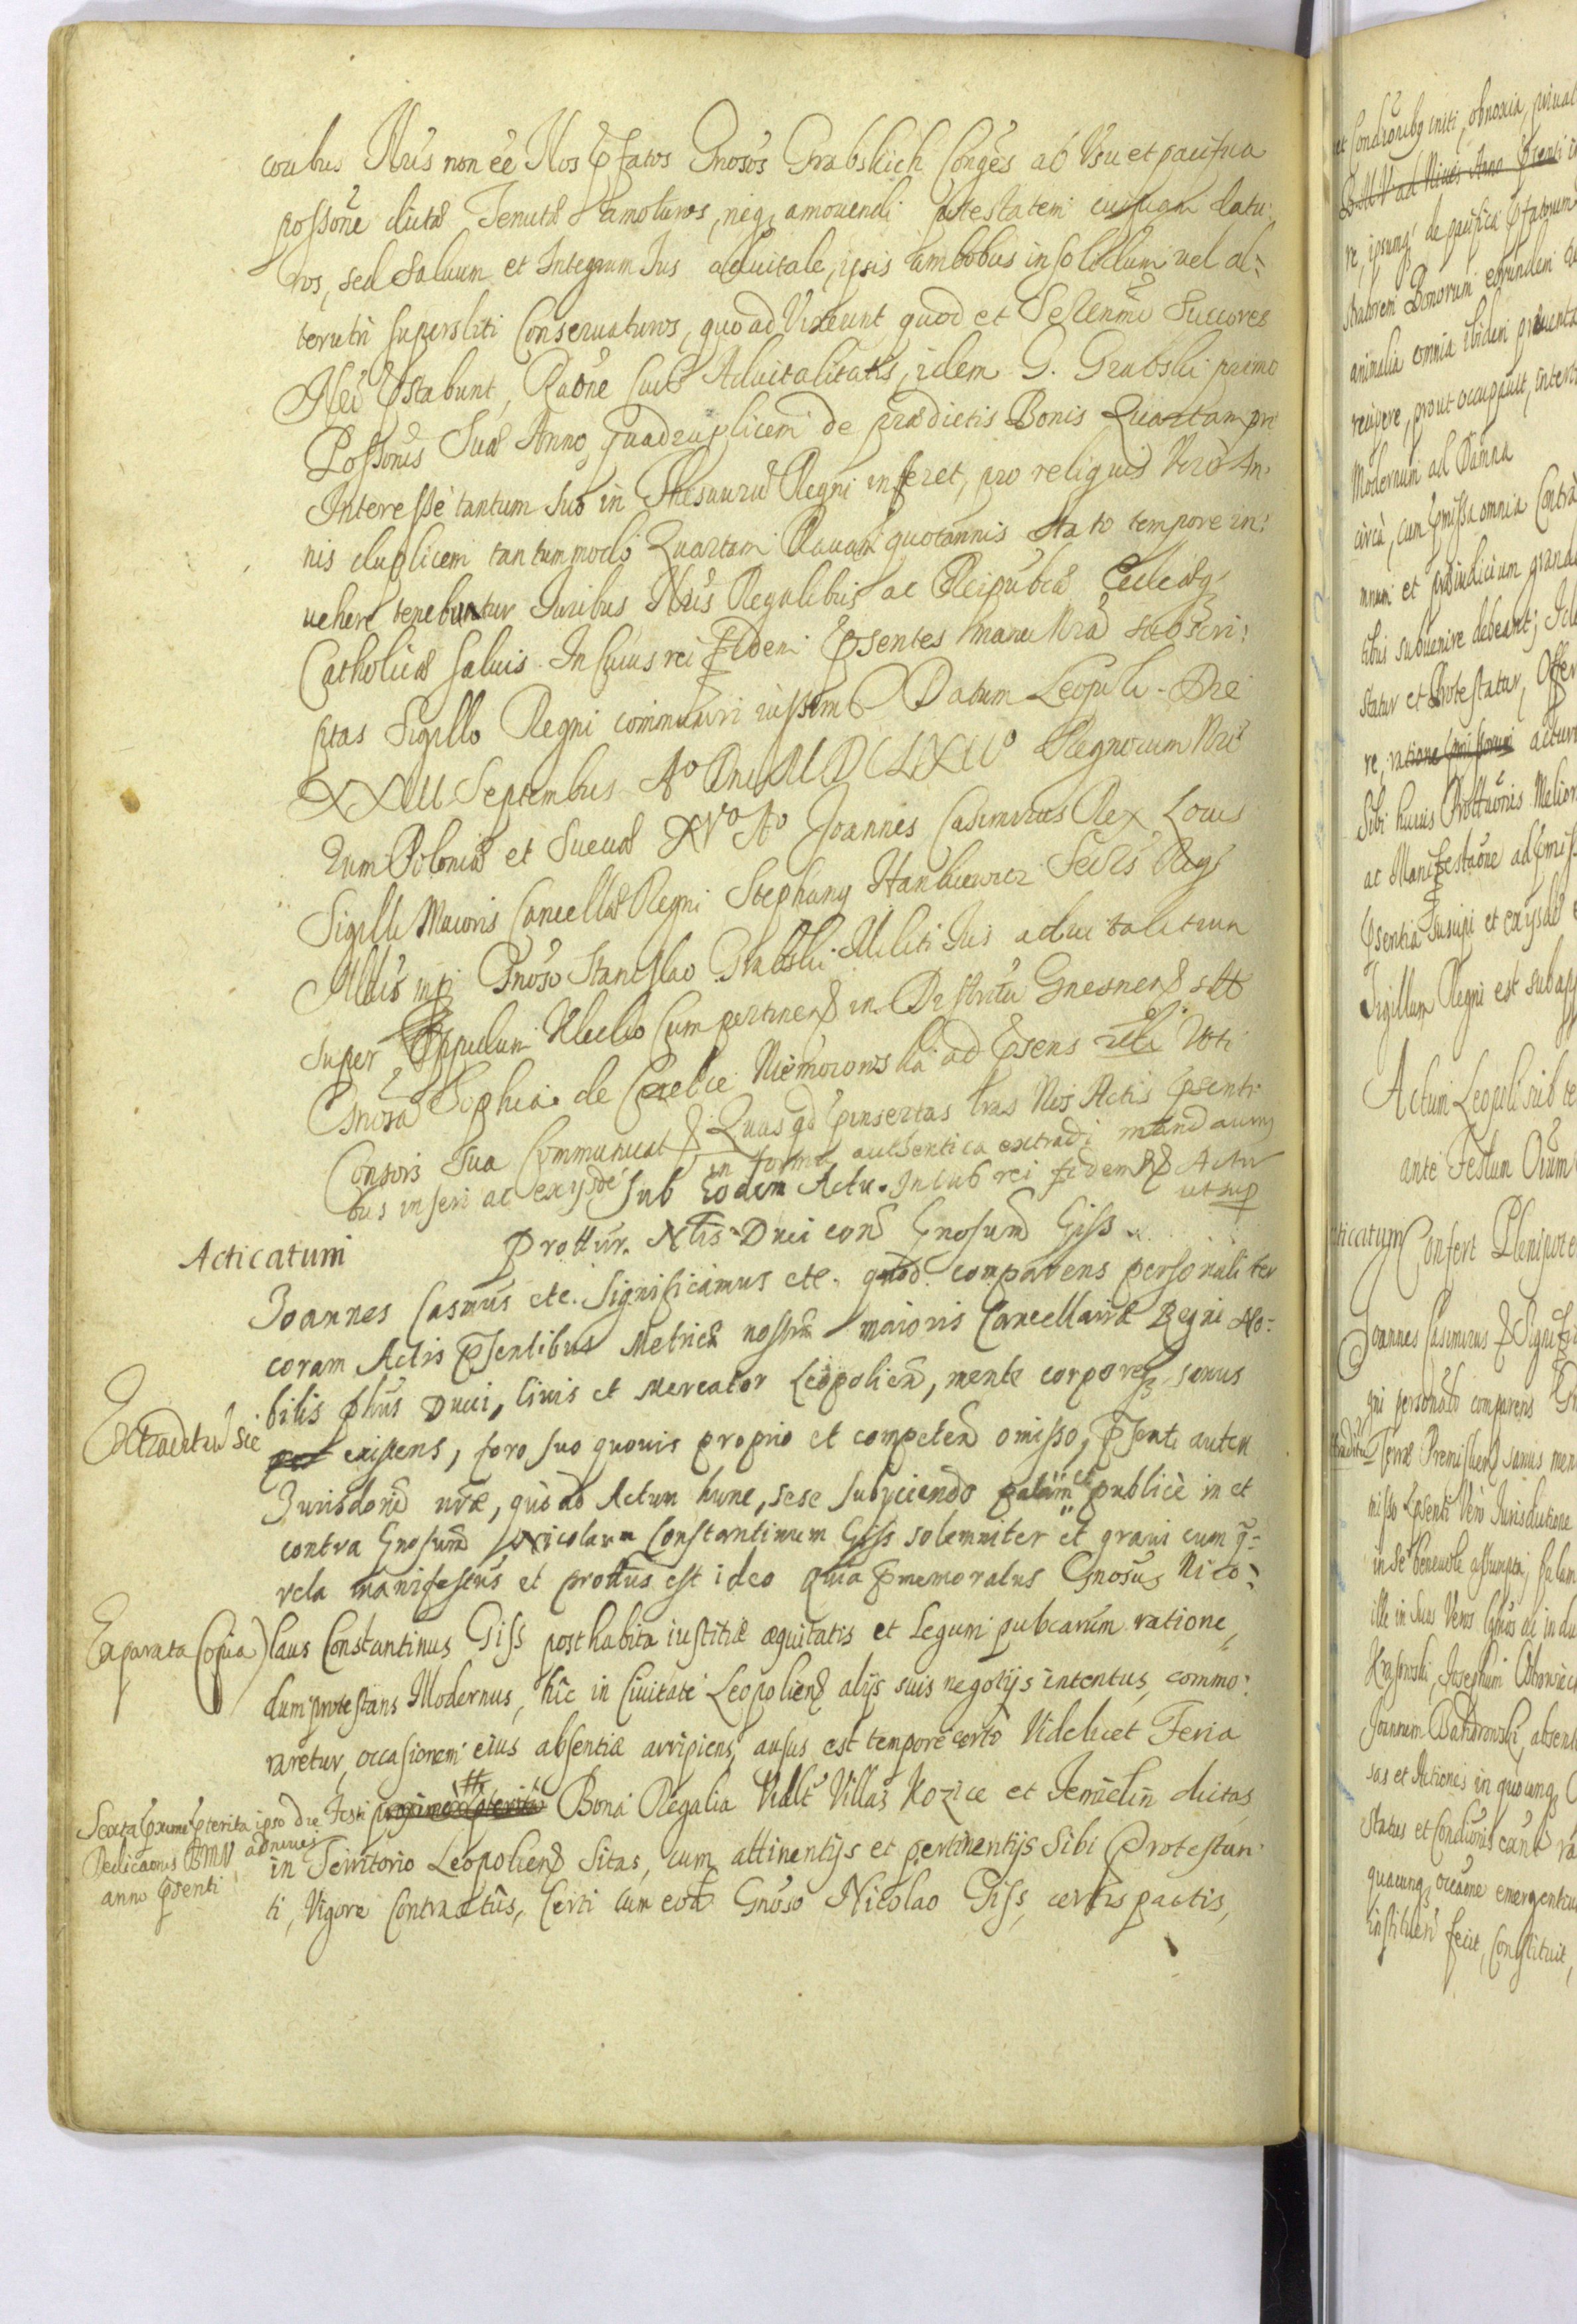 coribus Nris non ee Nos Pfatos Gnosos Grabskich Conges ab Usu et pacifica
possone dictæ Tenutæ amoturos, neq amouendi potestatem cuiquam datu:
ros, sed saluum et Integrum Ius aduitale, ipsis ambobus in solidum uel al:
terutri superstiti Conseruaturos, quoad Vixerunt quod et Serenmi Succores
Nri Pstabunt, Raone cuius Aduitalitatis, idem G. Grabski primo
Possonis Suæ Anno, quadruplicem de prædictis Bonis Quartam pro
Interesse tantum suo in Thesaurum Regni inferet, pro reliquis Vero An:
nis duplicem tantummodo Quartam Rauam quotannis stato tempore in:
uehere tenebuntur Iuribus Nris Regalibus ac Reipubcæ Eccleæq
Catholicæ saluis. In cuius rei fidem Psentes manu Nra subscri:
ptas Sigillo Regni communiri iussimus Datum Leopoli Die
XXIII Septembris Ao Dni MDCLXIIo Regnorum Nro
rum Poloniæ et Sueciæ XVo Ao Joannes Casimirus Rex Locus
Sigilli Maioris Cancellæ Regni Stephanus Hankiewicz Secrs Regs
Mtis mp Gnoso Stanislao Grabski Militi Ius aduitalitium
super Oppidum Klecko cum pertinens in Districtu Gnesnens stte
Gnosa Sophia de Czekce Niemoiowska ad Psens reli Uti
Consors Sua Communicat Quas qd Pinsertas Lras Nos Actis Psenti
bus inseri ac exijsde in forma authentica extradi mandauimus
Sub Eodem Actu. In cuius rei fidem Actu
ut sup
Acticatum
Prottur. Nlis Duci con Gnosum Giss
Joannes Casmus etc. Significamus etc. quod comparens personaliter
coram Actis Psentibus Metrices nostræ maioris Cancellariæ Regni No:
bilis phus Duci, Ciuis et Mercator Leopolien, mente corporeq sanus
Extraditum Sie
existens, foro suo quouis proprio et competen omisso, Psenti autem
Jurisdoni nræ, quo ad Actum hunc, sese subijciendo palàm et publicè in et
contra Gnosum Nicolaum Constantinum Giss solemniter et graui cum q:
rela manifestus et prottus est ideo Quia Pmemoratus Gnosus Nico:
Exparata Copia)
laus Constantinus Giss posthabita iustitiæ æquitatis et Legum pubcarum ratione,
dum protestans Modernus, hic in Ciuitate Leopoliens alijs suis negotijs intentus, commo:
raretur, occasionem eius absentiæ arripiens, ausus est tempore certo Videlicet Feria
Sexta Pxime Pterita ipso die Festi
Dedicaonis BMV ad niues
anno Psenti
proxime Pterita Bona Regalia Vidlt Villas Kozice et Jemielin dictas
in Territorio Leopoliens Sitas, cum attinentijs et pertinentijs Sibi Protestan
ti, Vigore Contractûs, Certi cum eod Gnoso Nicolao Giss, certis pactis,
et Condionibq initi, obnoxia, priuat
B.M.V ad Niues Anno Psenti
re, ipsumq de pacifica Pfatorum
stratorem Bonorum eorundem
animalia omnia ibidem prouenta
recipere, prout occuppauit,
Modernum ad Damna
circà, cum Pmissa omnia Contrà
mnum et præiudicium grande
tibus subuenire debeant;
statur et Protestatur, Offer
re, ratione Pmissorum actur
Sibi huius Prottaonis Melior
ac Manifestaone ad Pmiss
Psentia suscipi et exijsdē
Sigillum Regni est subapp
Actum Leopoli sub te
ante Festum Oium
Acticatum Confert Plenipote
Joannes Casimirus Signifi
gni personaliter comparens
Terræ Premislien sanus men
misso Psenti Verò Jurisdictione
in se beneuole assumpta, palam
ille in suis Veros
Krasowski, Josephum
Joannem Bandrowski, absent
sas et Actiones in quocunq
status et Condionis eant
quacunq occaone emergentiu
instituen fecit, Constituit,